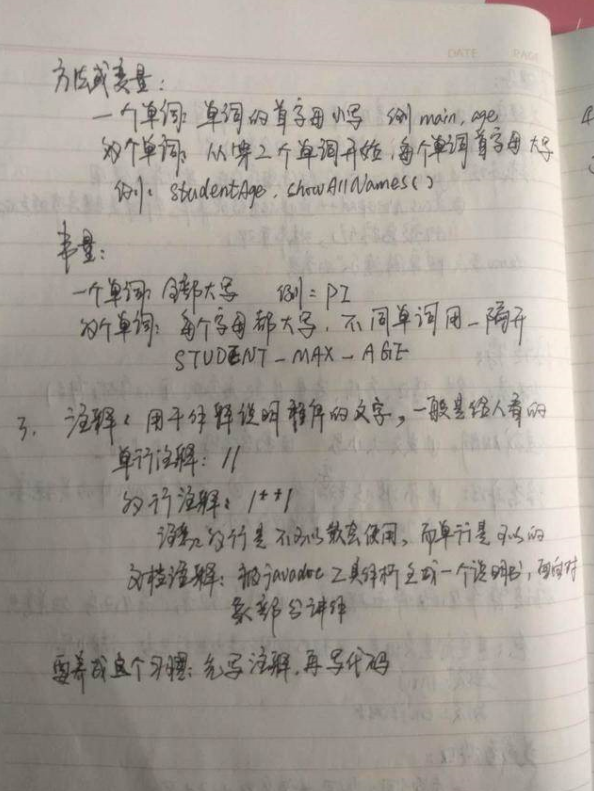 DATE PAGE
方法或变量：
一个单词：单词的首字母小写 例 main, age
多个单词：从第二个单词开始，每个单词首字母大写
例：studentAge, showAllNames()
常量：
一个单词：全部大写 例：PI
多个单词：每个字母都大写，不同单词用_隔开
STUDENT_MAX_AGE
3. 注解：用于解释说明程序的文字，一般是给人看的
单行注解：//
多行注解：/**/
注意：多行是不可以嵌套使用，而单行是可以的
文档注解：被javadoc工具解析生成一个说明书，面向对
象部分讲解
要养成这个习惯：先写注解，再写代码